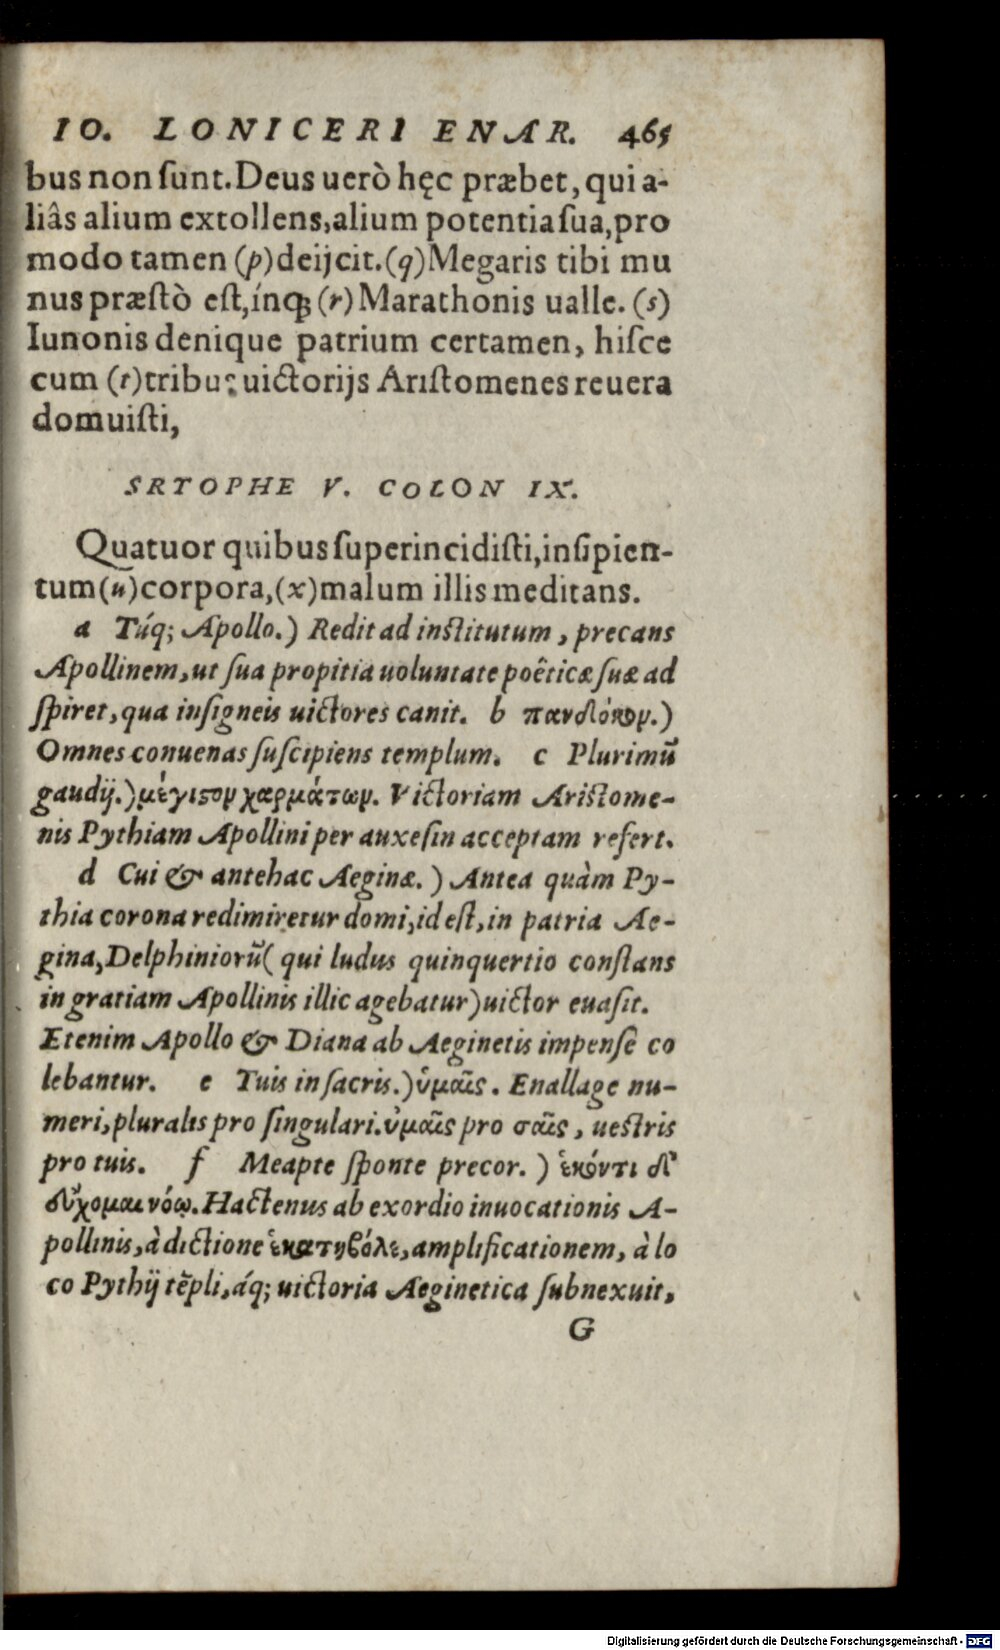 IO. LONICERI ENAR. 465
bus non sunt. Deus uerò hęc præbet, qui a-
liâs alium extollens, alium potentia sua, pro
modo tamen (p) deijcit. (q) Megaris tibi mu
nus præstò est, ínq; (r) Marathonis ualle. (s)
Iunonis denique patrium certamen, hisce
cum (t) tribus uictorijs Aristomenes reuera
domuisti,
SRTOPHE V. COLON IX.
Quatuor quibus superincidisti, insipien-
tum (u) corpora, (x) malum illis meditans.
a Túq; Apollo.) Redit ad institutum, precans
Apollinem, ut sua propitia uoluntate poêticæ suæ ad
spiret, qua insigneis uictores canit. b πανδόκον.)
Omnes conuenas suscipiens templum. c Plurimũ
gaudij.) μέγιστον χαρμάτων. Victoriam Aristome-
nis Pythiam Apollini per auxesin acceptam refert.
d Cui & antehac Aeginæ.) Antea quàm Py-
thia corona redimiretur domi, id est, in patria Ae-
gina, Delphiniorũ (qui ludus quinquertio constans
in gratiam Apollinis illic agebatur) uictor euasit.
Etenim Apollo & Diana ab Aeginetis impense co
lebantur. e Tuis in sacris.) ὑμαῖς. Enallage nu-
meri, pluralis pro singulari. ὑμαῖς pro σαῖς, uestris
pro tuis. f Meapte sponte precor.) ἑκόντι δ'
εὔχομαι νόῳ. Hactenus ab exordio inuocationis A-
pollinis, à dictione ἑκατηβόλε, amplificationem, à lo
co Pythij tẽpli, áq; uictoria Aeginetica subnexuit,
G
Digitalisierung gefördert durch die Deutsche Forschungsgemeinschaft - DFG